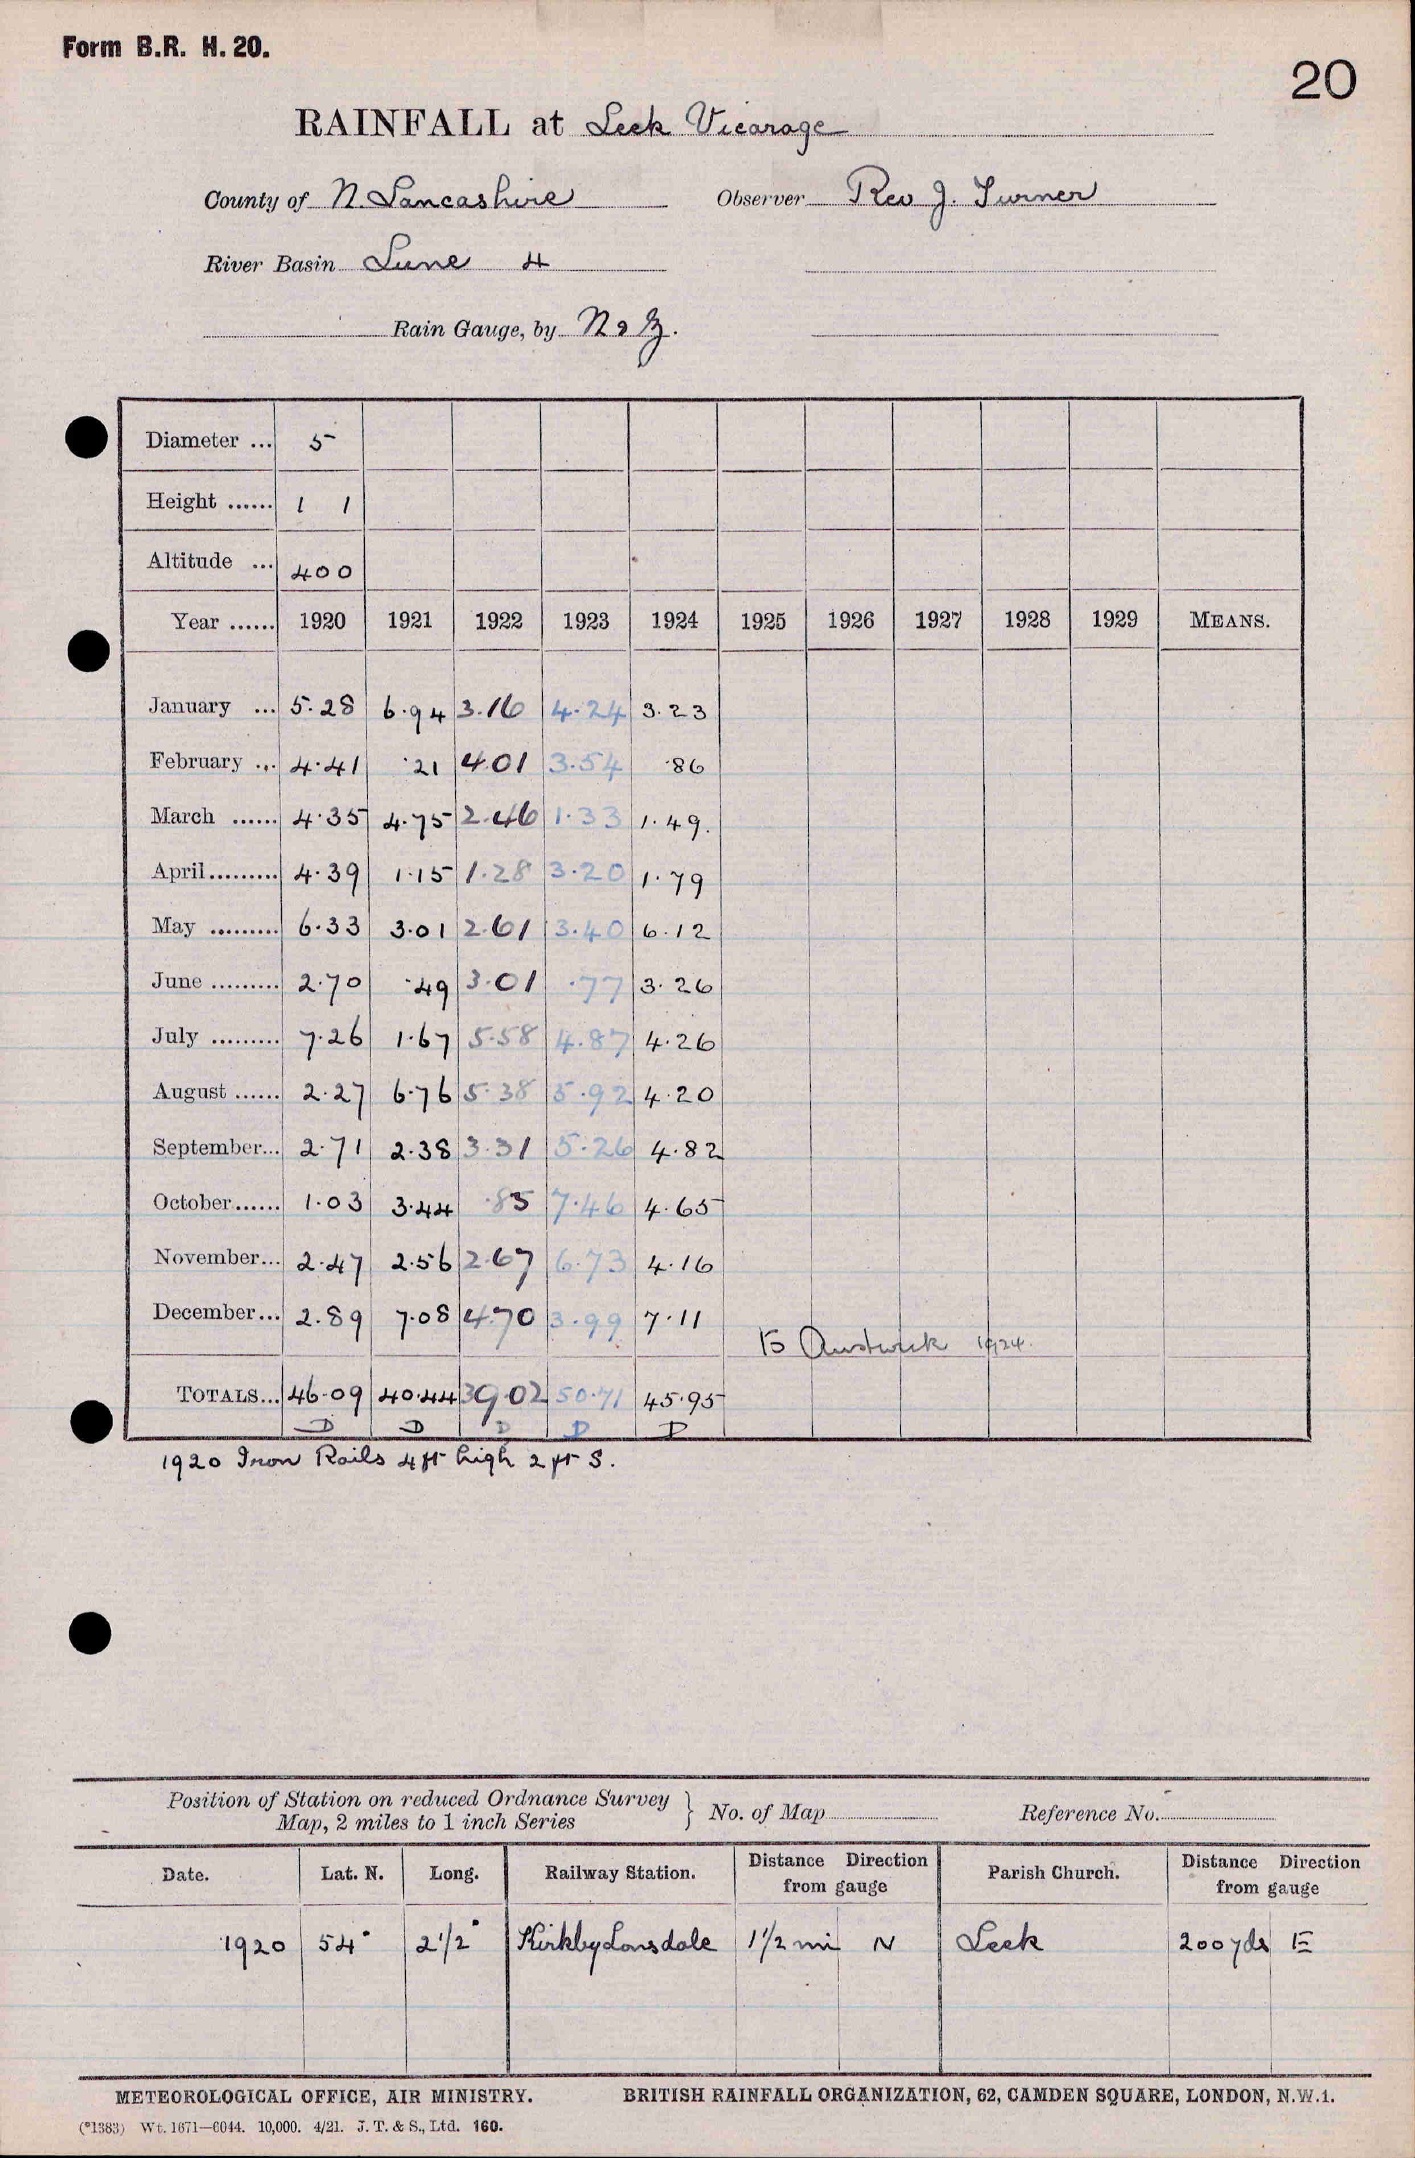 Form B.R. H. 20.
20
RAINFALL at Leek Vicarage
County of N. Lancashire Observer Rev J. Turner
River Basin Lune 4
Rain Gauge, by N & Z.
Diameter ... 5
Height ...... 1 1
Altitude ... 400
Year ...... 1920 1921 1922 1923 1924 1925 1926 1927 1928 1929 MEANS.
January ... 5.28 6.94 3.16 4.24 3.23
February ... 4.41 .21 4.01 3.54 .86
March ...... 4.35 4.75 2.46 1.33 1.49.
April......... 4.39 1.15 1.28 3.20 1.79
May ......... 6.33 3.01 2.61 3.40 6.12
June ......... 2.70 .49 3.01 .77 3.26
July ......... 7.26 1.67 5.58 4.87 4.26
August ...... 2.27 6.76 5.38 5.92 4.20
September... 2.71 2.38 3.31 5.26 4.82
October...... 1.03 3.44 .85 7.46 4.65
November... 2.47 2.56 2.67 6.73 4.16
December... 2.89 7.08 4.70 3.99 7.11
To Austwick 1924.
TOTALS... 46.09 40.44 39.02 50.71 45.95
D D D D D
1920 Iron Rails 4 ft high 2 ft S.
Position of Station on reduced Ordnance Survey
Map, 2 miles to 1 inch Series } No. of Map Reference No.
Date. Lat. N. Long. Railway Station. Distance Direction from gauge Parish Church. Distance Direction from gauge
1920 54° 2 1/2° Kirkby Lonsdale 1 1/2 mi N Leek 200 yds E
METEOROLOGICAL OFFICE, AIR MINISTRY. BRITISH RAINFALL ORGANIZATION, 62, CAMDEN SQUARE, LONDON, N.W.1.
(*1383) Wt. 1671—6044. 10,000. 4/21. J. T. & S., Ltd. 160.